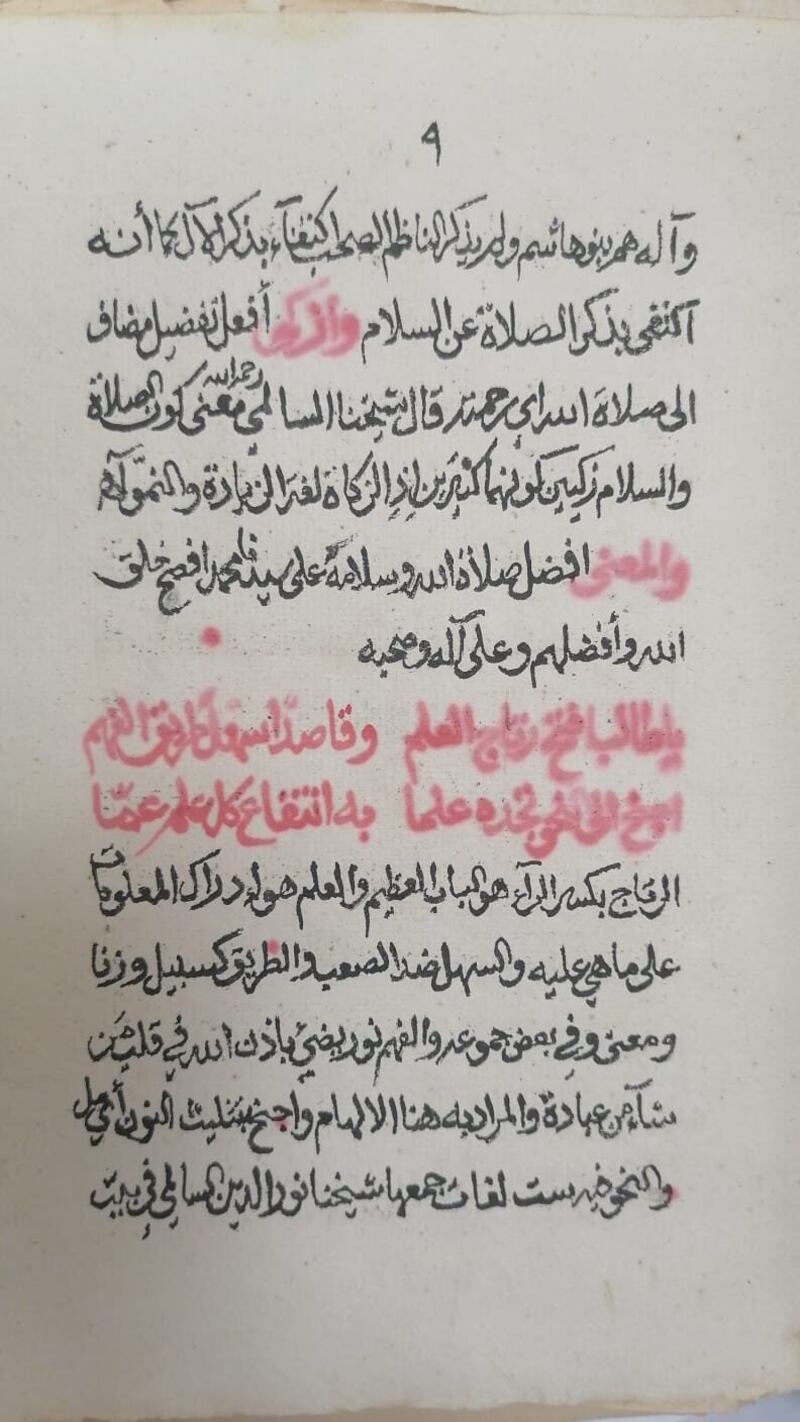 ٩
وآله هم بنو هاشم ولم يذكر الناظم الصحب اكتفآء بذكر الآل كما أنه
آكتفى بذكر الصلاة عن السلام وأزكى أفعل تفضيل مضاف
الى صلاة الله اي رحمته قال شيخنا السالمي رحمه الله معنى كون الصلاة
والسلام زكيين كونهما كثيرين إذ الزكاة لغة الزيادة والنموّ آه
والمعنى افضل صلاة الله وسلامه على سيدنا محمد افصح خلق
الله وأفضلهم وعلى آله وصحبه
يا طالبا فتح رتاج العلم وقاصدا سهل طريق الفهم
اجنح الى نحو تجده علما به انتفاع كل علم عمّا
الرتاج بكسر الرآء هو الباب العظيم والعلم هو إدراك المعلومات
على ما هي عليه والسهل ضد الصعب والطريق كسبيل وزنا
ومعنى وفي بعض جموعه والفهم نور يضيء باذن الله في قلب من
شآء من عباده والمراد به هنا الالهام واجنح بتثليث النون أي مل
والنحو فيه ست لغات جمعها شيخنا نور الدين السالمي في بيت